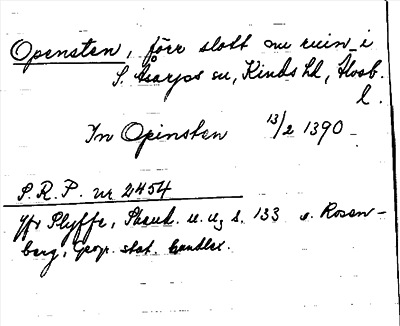 Opensten, förr slott nu ruin i
S. Åsarps sn, Kinds hd, Älvsb.
l.
In Opinsten 13/2 1390
S.R.P. nr 2454
Jfr Styffe, Skand. u. u., s. 133 o. Rosen-
berg, Geogr. stat. handlex.